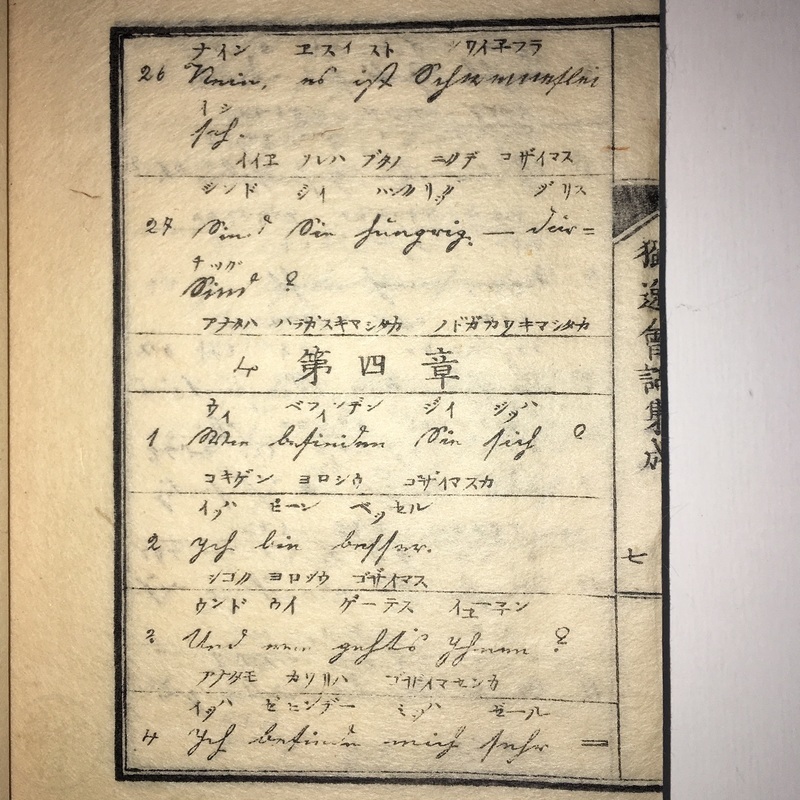 ナイン ヱスイスト シワイ子フラ
26 Nein, es ist Schweineflei
イシ
sch.
イイヱ ソレハ ブタノ ニクデ コザイマス
ジンド ジイ ハングリッグ ヅリス
27 Sind Sie hungrig. — dur=
チッグ
Sind ?
アナタハ ハラガスキマシタカ ノドガカワキマシタカ
4 第四章
ウィ ベフィンデン ジイ ジッハ
1 Wie befinden Sie sich ?
コキゲン ヨロシウ コザイマスカ
イッハ ビーン ベッセル
2 Ich bin besser.
シゴク ヨロシウ ゴザイマス
ウンド ウイ ゲーテス イー子ン
3 Und wie gehts Ihnen ?
アナタモ カワリハ ゴザイマセンカ
イッハ ミッハ ゼール
4 Ich befinde mich sehr =
獨逸會話集成
七